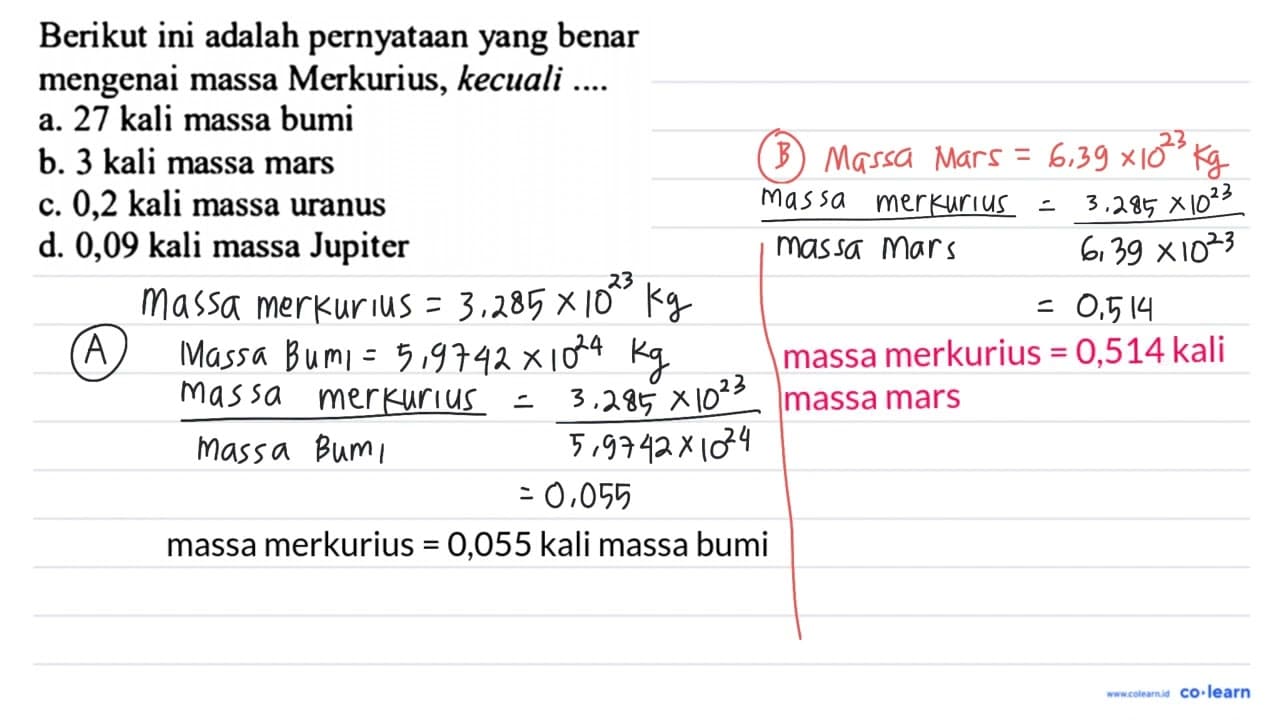 Berikut ini adalah pernyataan yang benar
mengenai massa Merkurius, kecuali ....
a. 27 kali massa bumi
b. 3 kali massa mars
c. 0,2 kali massa uranus
d. 0,09 kali massa Jupiter
Massa merkurius = 3,285 × 10²³ kg
A Massa Bumi = 5,9742 × 10²⁴ kg
Massa merkurius = 3.285 × 10²³
Massa Bumi 5,9742 × 10²⁴
= 0,055
massa merkurius = 0,055 kali massa bumi
B Massa Mars = 6,39 × 10²³ kg
Massa merkurius = 3.285 × 10²³
massa Mars 6,39 × 10²³
= 0,514
massa merkurius = 0,514 kali
massa mars
www.colearn.id co·learn